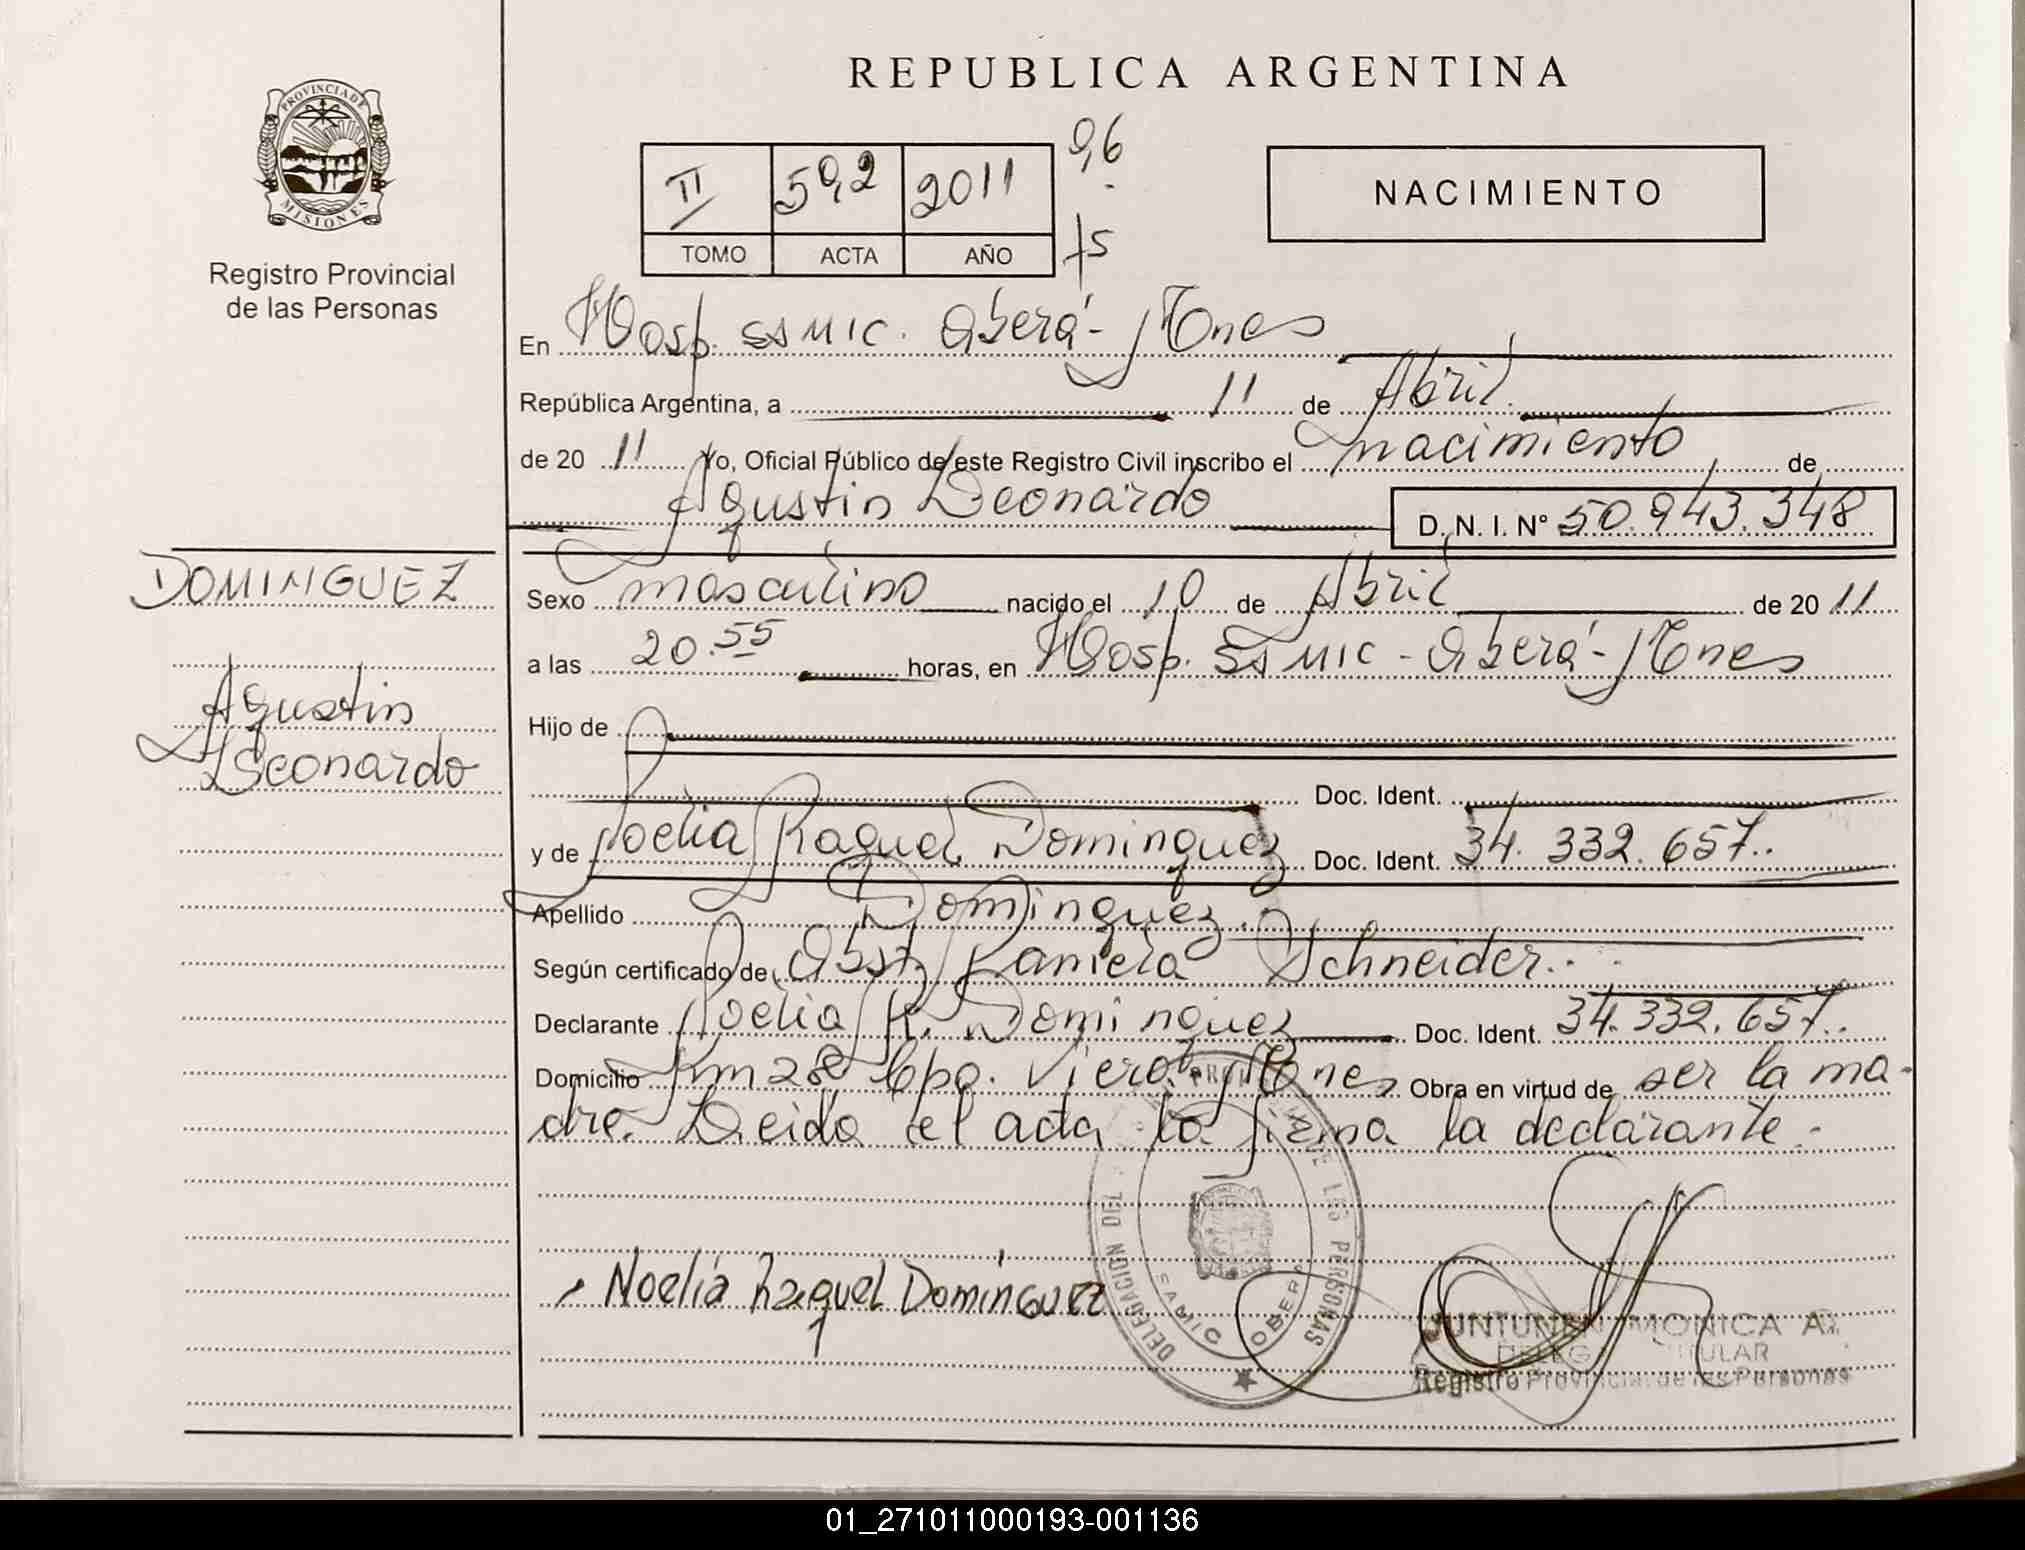 REPUBLICA ARGENTINA
PROVINCIA DE MISIONES
Registro Provincial
de las Personas
II 502 2011
TOMO ACTA AÑO
NACIMIENTO
En Hosp. SAMIC. Oberá - Mnes
República Argentina, a 11 de Abril.
de 20 11 Yo, Oficial Público de este Registro Civil inscribo el nacimiento de
Agustin Leonardo D. N. I. Nº 50.943.348
DOMINGUEZ
Agustin
Leonardo
Sexo masculino nacido el 10 de Abril de 20 11
a las 20.55 horas, en Hosp. SAMIC - Oberá - Mnes
Hijo de
Doc. Ident.
y de Noelia Raquel Dominguez Doc. Ident. 34.332.657.
Apellido Dominguez.
Según certificado de Obst. Daniela Schneider.
Declarante Noelia R. Dominguez Doc. Ident. 34.332.657.
Domicilio Km 28 Cpo. Viera, Mnes Obra en virtud de ser la ma-
dre. Leida el acta la firma la declarante.
Noelia Raquel Dominguez
DELEGACION DEL DE LAS PERSONAS
SAMIC OBERA
JUNTUNEN MONICA A.
DELEGADA TITULAR
Registro Provincial de las Personas
01_271011000193-001136